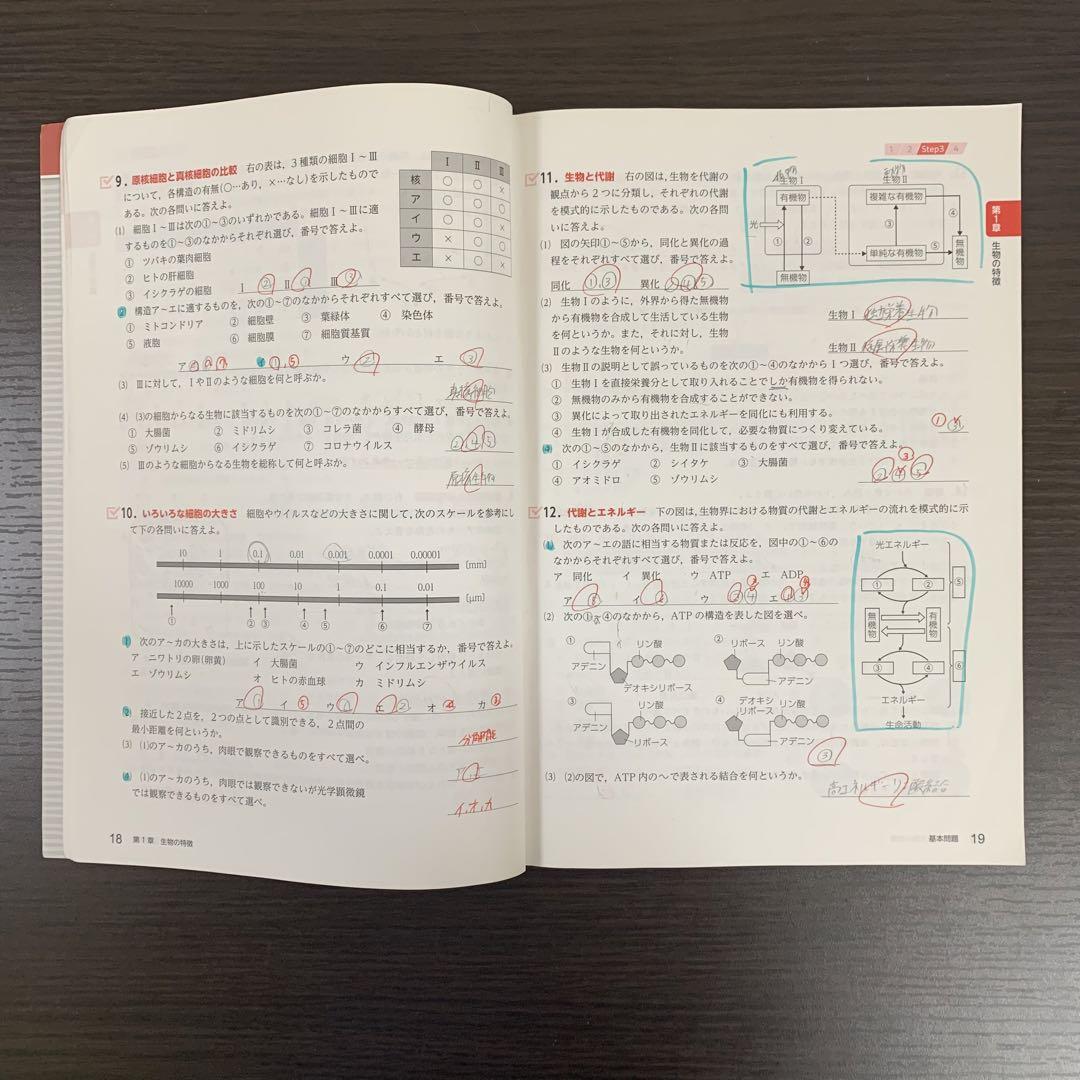 9. 原核細胞と真核細胞の比較 右の表は，3種類の細胞Ⅰ～Ⅲ
について，各構造の有無(○…あり，×…なし)を示したもので
ある。次の各問いに答えよ。
(1) 細胞Ⅰ～Ⅲは次の①～③のいずれかである。細胞Ⅰ～Ⅲに適
するものを①～③のなかからそれぞれ選び，番号で答えよ。
① ツバキの葉肉細胞
② ヒトの肝細胞
③ イシクラゲの細胞
Ⅰ Ⅱ Ⅲ
Ⅰ Ⅱ Ⅲ
核 ○ ○ ×
ア ○ ○ ○
イ ○ ○ ○
ウ × ○ ○
エ × ○ ×
構造ア～エに適するものを，次の①～⑦のなかからそれぞれすべて選び，番号で答えよ。
① ミトコンドリア ② 細胞壁 ③ 葉緑体 ④ 染色体
⑤ 液胞 ⑥ 細胞膜 ⑦ 細胞質基質
ア イ ①,⑤ ウ ② エ ③
(3) Ⅲに対して，ⅠやⅡのような細胞を何と呼ぶか。
(4) (3)の細胞からなる生物に該当するものを次の①～⑦のなかからすべて選び，番号で答えよ。
① 大腸菌 ② ミドリムシ ③ コレラ菌 ④ 酵母
⑤ ゾウリムシ ⑥ イシクラゲ ⑦ コロナウイルス
②④⑤
(5) Ⅲのような細胞からなる生物を総称して何と呼ぶか。
原核生物
10. いろいろな細胞の大きさ 細胞やウイルスなどの大きさに関して，次のスケールを参考にし
て下の各問いに答えよ。
10 1 0.1 0.01 0.001 0.0001 0.00001 [mm]
10000 1000 100 10 1 0.1 0.01 [μm]
① ② ③ ④ ⑤ ⑥ ⑦
次のア～カの大きさは，上に示したスケールの①～⑦のどこに相当するか，番号で答えよ。
ア ニワトリの卵(卵黄) イ 大腸菌 ウ インフルエンザウイルス
エ ゾウリムシ オ ヒトの赤血球 カ ミドリムシ
ア ① イ ⑤ ウ エ ② オ ④ カ ③
接近した2点を，2つの点として識別できる，2点間の
最小距離を何というか。
分解能
(3) (1)のア～カのうち，肉眼で観察できるものをすべて選べ。
ア,エ
(1)のア～カのうち，肉眼では観察できないが光学顕微鏡
では観察できるものをすべて選べ。
イ,オ,カ
18 第1章 生物の特徴
1 2 Step3 4
第1章 生物の特徴
11. 生物と代謝 右の図は，生物を代謝の
観点から2つに分類し，それぞれの代謝
を模式的に示したものである。次の各問
いに答えよ。
生物Ⅰ 生物Ⅱ
有機物 複雑な有機物
光 ① ② ③ ④
単純な有機物 ⑤ 無機物
無機物
(1) 図の矢印①～⑤から，同化と異化の過
程をそれぞれすべて選び，番号で答えよ。
同化 ①,③ 異化 ②④⑤
(2) 生物Ⅰのように，外界から得た無機物
から有機物を合成して生活している生物
を何というか。また，それに対し，生物
Ⅱのような生物を何というか。
生物Ⅰ 独立栄養生物
生物Ⅱ 従属栄養生物
(3) 生物Ⅱの説明として誤っているものを次の①～④のなかから1つ選び，番号で答えよ。
① 生物Ⅰを直接栄養分として取り入れることでしか有機物を得られない。
② 無機物のみから有機物を合成することができない。
③ 異化によって取り出されたエネルギーを同化にも利用する。
④ 生物Ⅰが合成した有機物を同化して，必要な物質につくり変えている。
① ③
次の①～⑤のなかから，生物Ⅱに該当するものをすべて選び，番号で答えよ。
① イシクラゲ ② シイタケ ③ 大腸菌
④ アオミドロ ⑤ ゾウリムシ
③
② ④ ⑤
12. 代謝とエネルギー 下の図は，生物界における物質の代謝とエネルギーの流れを模式的に示
したものである。次の各問いに答えよ。
次のア～エの語に相当する物質または反応を，図中の①～⑥の
なかからそれぞれすべて選び，番号で答えよ。
ア 同化 イ 異化 ウ ATP エ ADP
ア ⑤ イ ⑥ ウ ② エ ①
光エネルギー
① ② ⑤
無機物 有機物
③ ④ ⑥
エネルギー
生命活動
(2) 次の①～④のなかから，ATPの構造を表した図を選べ。
① リン酸 アデニン デオキシリボース
② リボース リン酸 アデニン
③ リン酸 アデニン リボース
④ デオキシリボース リン酸 アデニン
③
(3) (2)の図で，ATP内の～で表される結合を何というか。
高エネルギーリン酸結合
基本問題 19